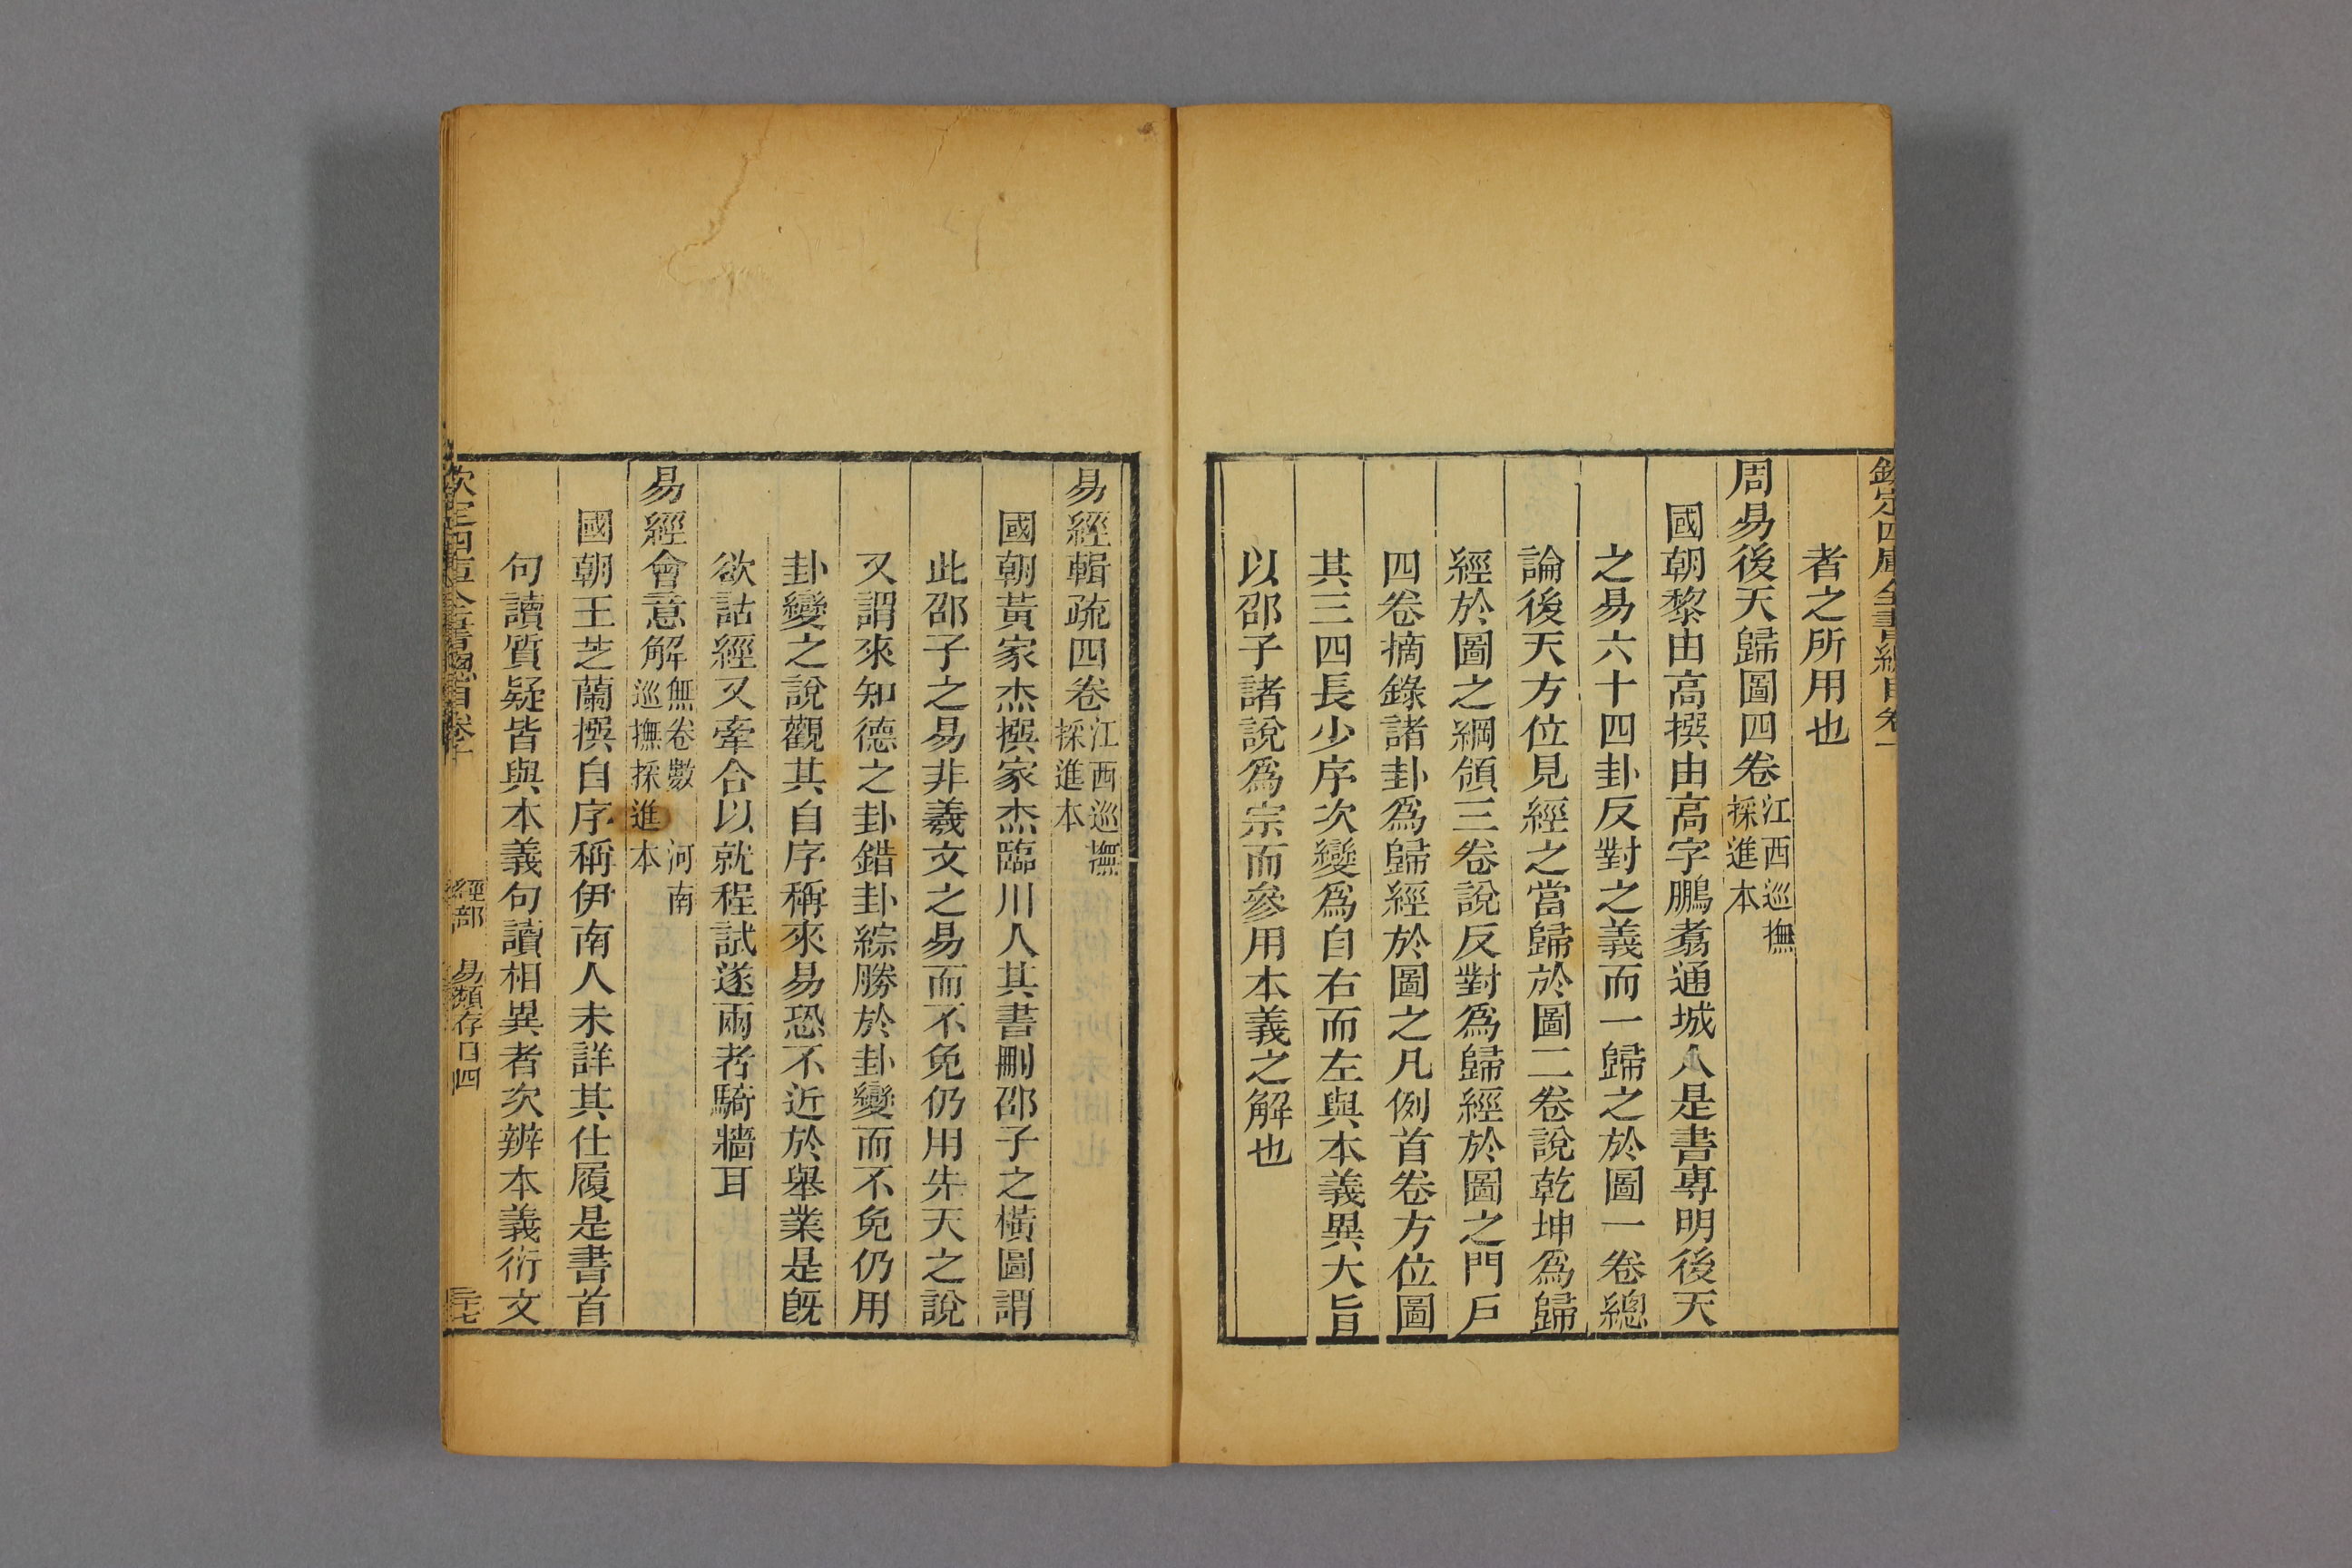 者之所用也
周易後天歸圖四卷江西巡撫採進本
國朝黎由高撰由高字鵬翥通城人是書專明後天
之易六十四卦反對之義而一歸之於圖一卷總
論後天方位見經之當歸於圖二卷說乾坤爲歸
經於圖之綱領三卷說反對爲歸經於圖之門戶
四卷摘錄諸卦爲歸經於圖之凡例首卷方位圖
其三四長少序次變爲自右而左與本義異大旨
以邵子諸說爲宗而參用本義之解也
易經輯疏四卷江西巡撫採進本
國朝黃家杰撰家杰臨川人其書刪邵子之橫圖謂
此邵子之易非羲文之易而不免仍用先天之說
又謂來知德之卦錯卦綜勝於卦變而不免仍用
卦變之說觀其自序稱來易恐不近於舉業是旣
欲詁經又牽合以就程試遂兩者騎牆耳
易經會意解無卷數 河南巡撫採進本
國朝王芝蘭撰自序稱伊南人未詳其仕履是書首
句讀質疑皆與本義句讀相異者次辨本義衍文
經部 易類存目四